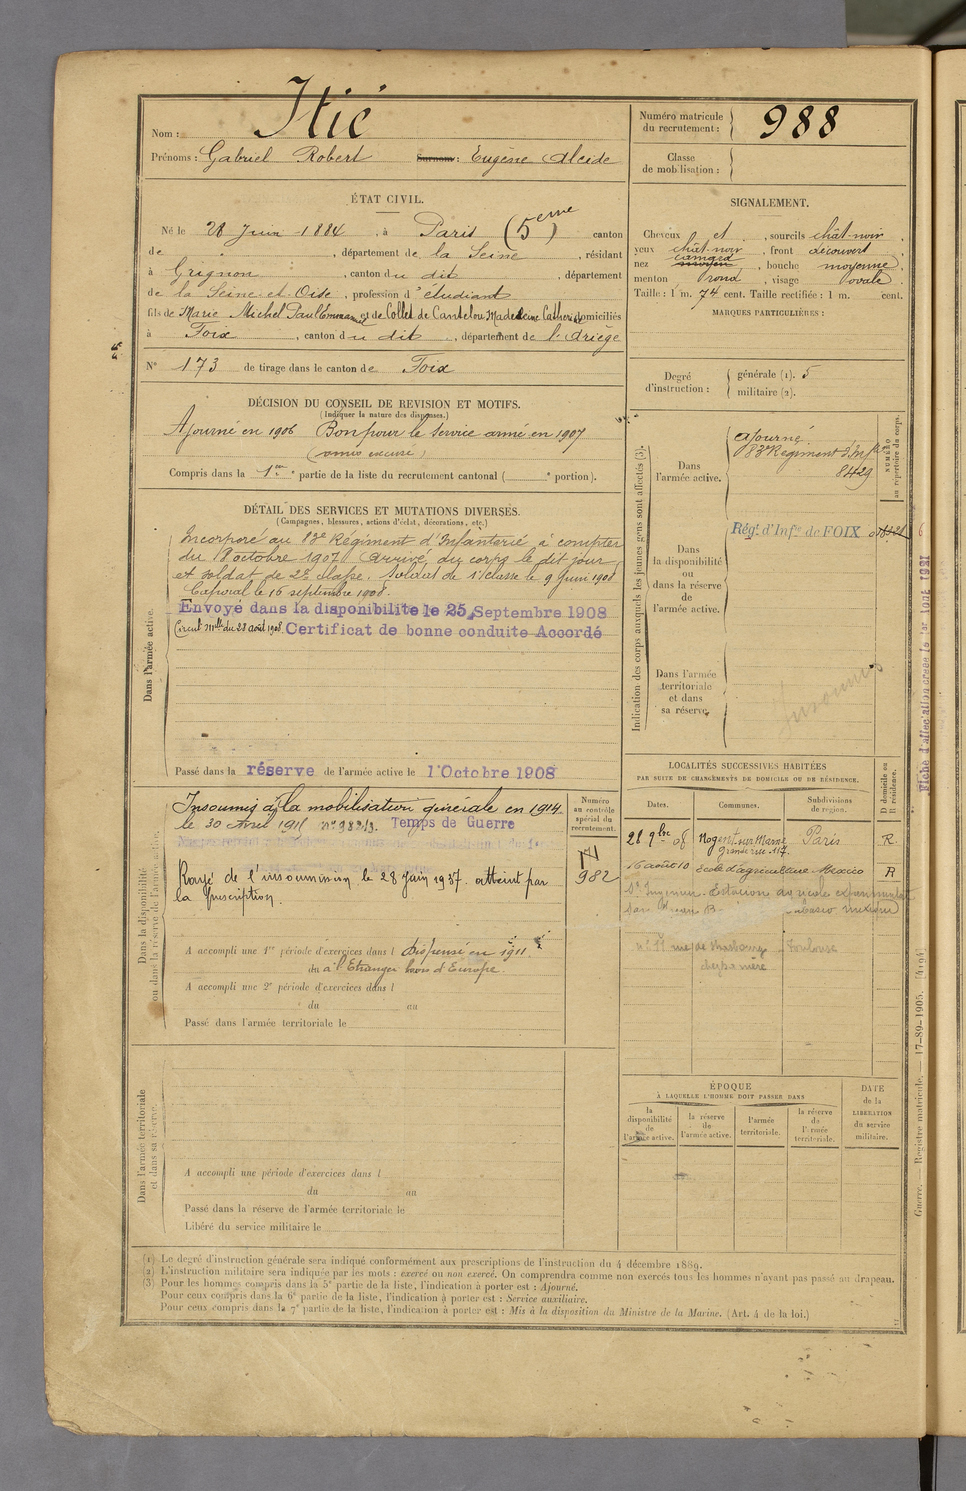 Nom : Itié
Prénoms : Gabriel Robert Surnom : Eugène Alcide
Numéro matricule du recrutement : 988
Classe de mobilisation :
ÉTAT CIVIL.
Né le 28 Juin 1884, à Paris (5eme) canton
de , département de la Seine, résidant
à Grignon, canton du dit, département
de la Seine-et-Oise, profession d'étudiant
fils de Marie Michel Paul Emmanuel et de Collet de Cantelou Madeleine Catherine domiciliés
à Foix, canton du dit, département de l'Ariège
N° 173 de tirage dans le canton de Foix
SIGNALEMENT.
Cheveux et , sourcils chât-noir,
yeux chât-noir, front découvert,
nez moyen camard, bouche moyenne,
menton rond, visage ovale.
Taille : 1 m. 74 cent. Taille rectifiée : 1 m. cent.
MARQUES PARTICULIÈRES :
Degré d'instruction : générale (1). 5
militaire (2).
DÉCISION DU CONSEIL DE REVISION ET MOTIFS.
(Indiquer la nature des dispenses.)
Ajourné en 1906 Bon pour le service armé en 1907
(omis excusé)
Compris dans la 1re partie de la liste du recrutement cantonal ( e portion).
DÉTAIL DES SERVICES ET MUTATIONS DIVERSES.
(Campagnes, blessures, actions d'éclat, décorations, etc.)
Dans l'armée active.
Incorporé au 83e Régiment d'Infanterie à compter
du 8 octobre 1907 arrivé au corps le dit jour
et soldat de 2e classe. Soldat de 1e classe le 9 juin 1908
Caporal le 16 septembre 1908.
Envoyé dans la disponibilité le 25 Septembre 1908
Circul. Mlle du 28 août 1908. Certificat de bonne conduite Accordé
Passé dans la réserve de l'armée active le 1 Octobre 1908
Indication des corps auxquels les jeunes gens sont affectés (3).
NUMÉRO au répertoire du corps.
Dans l'armée active.
Ajourné.
83e Régiment d'Infie
8429
Dans la disponibilité ou dans la réserve de l'armée active.
Régt d'Infie de FOIX
Dans l'armée territoriale et dans sa réserve.
Insoumis
Dans la disponibilité ou dans la réserve de l'armée active.
Insoumis à la mobilisation générale en 1914
le 30 Avril 1915 n° 982/9. Temps de Guerre
Rayé de l'insoumission le 28 Juin 1937. atteint par
la prescription.
Numéro au contrôle spécial du recrutement.
982
A accompli une 1re période d'exercices dans l Dispensé en 1911
du à l'Etranger hors d'Europe
A accompli une 2e période d'exercices dans l
du au
Passé dans l'armée territoriale le
LOCALITÉS SUCCESSIVES HABITÉES
PAR SUITE DE CHANGEMENTS DE DOMICILE OU DE RÉSIDENCE.
Dates. Communes. Subdivisions de région. D domicile ou R résidence.
28 9bre 08 Nogent-sur-Marne Grande rue 117 Paris R.
16 août 10 école d'agriculture Mexico R
n° 11 rue de Strasbourg Toulouse
chez sa mère
ÉPOQUE
À LAQUELLE L'HOMME DOIT PASSER DANS
la disponibilité de l'armée active.
la réserve de l'armée active.
l'armée territoriale.
la réserve de l'armée territoriale.
DATE de la LIBÉRATION du service militaire.
Dans l'armée territoriale et dans sa réserve.
A accompli une période d'exercices dans l
du au
Passé dans la réserve de l'armée territoriale le
Libéré du service militaire le
(1) Le degré d'instruction générale sera indiqué conformément aux prescriptions de l'instruction du 4 décembre 1889.
(2) L'instruction militaire sera indiquée par les mots : exercé ou non exercé. On comprendra comme non exercés tous les hommes n'ayant pas passé au drapeau.
(3) Pour les hommes compris dans la 5e partie de la liste, l'indication à porter est : Ajourné.
Pour ceux compris dans la 6e partie de la liste, l'indication à porter est : Service auxiliaire.
Pour ceux compris dans la 7e partie de la liste, l'indication à porter est : Mis à la disposition du Ministre de la Marine. (Art. 4 de la loi.)
Guerre. — Registre matricule. — 17-89-1905. [4194]